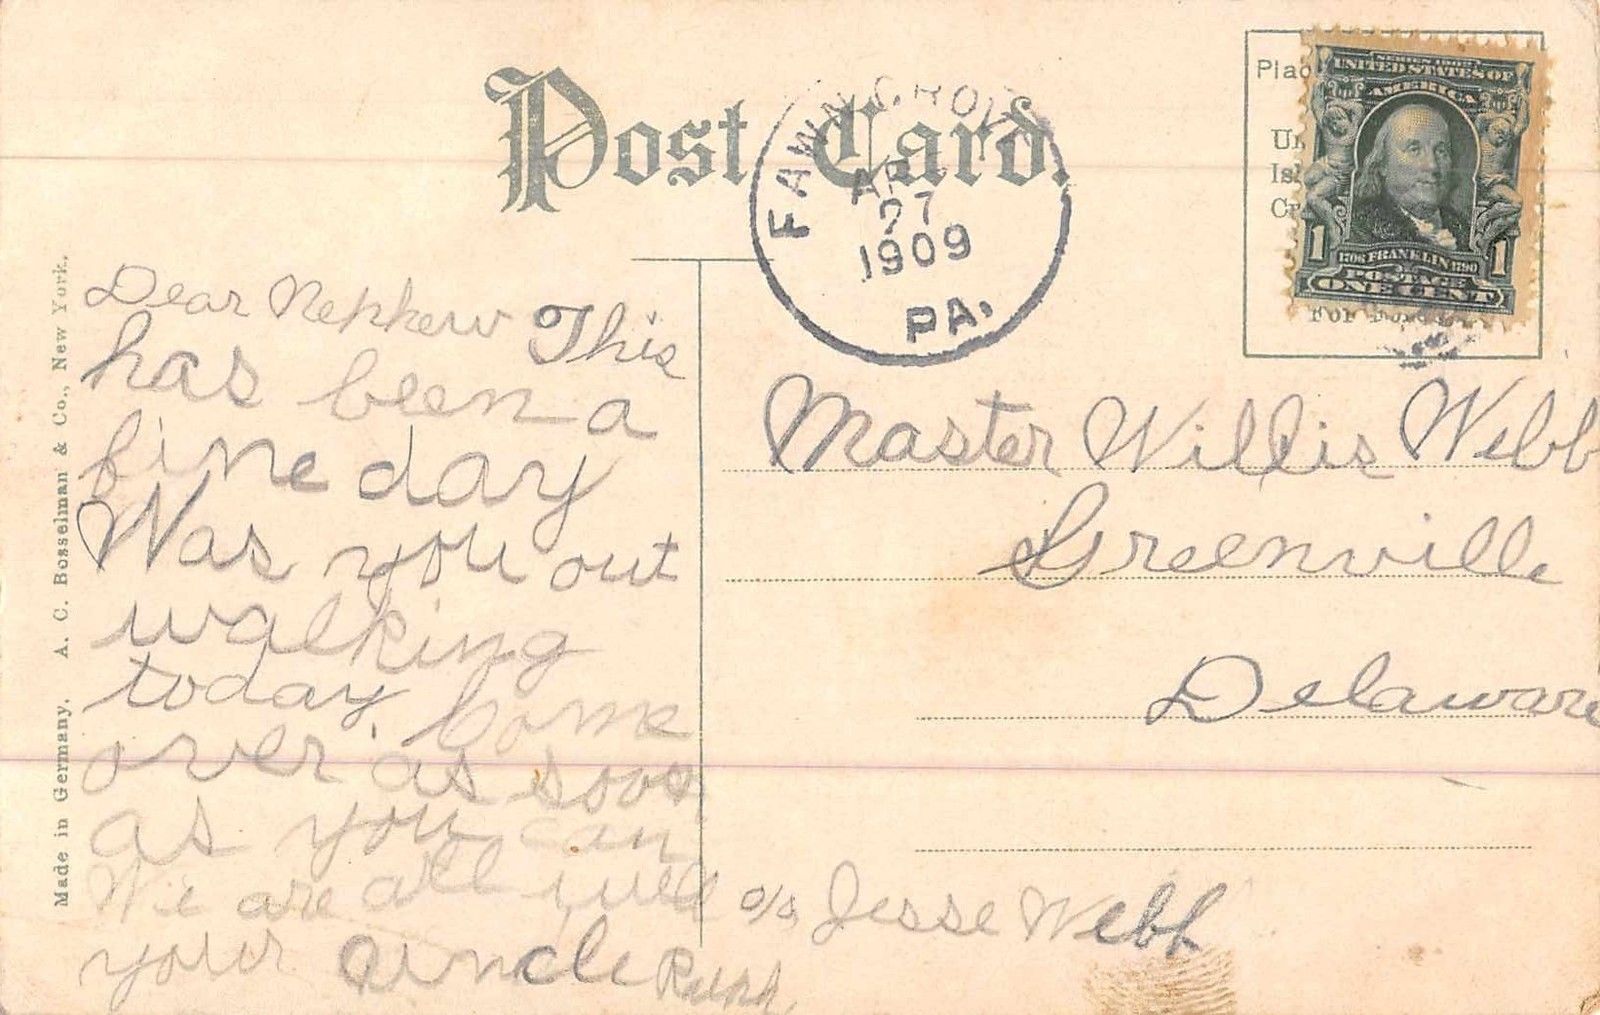 Post Card.
FAWN GROVE
AP
27
1909
PA.
Plac
Un
Isl
For
UNITED STATES OF
AMERICA
1 1
1706 FRANKLIN 1790
POSTAGE
ONE CENT
Dear Nephew This
has been a
fine day
Was you out
walking
today. Come
over as soon
as you can
We are all well
your uncle
Master Willis Webb
Greenville
Delaware
c/o Jesse Webb
Made in Germany. A. C. Bosselman & Co., New York.